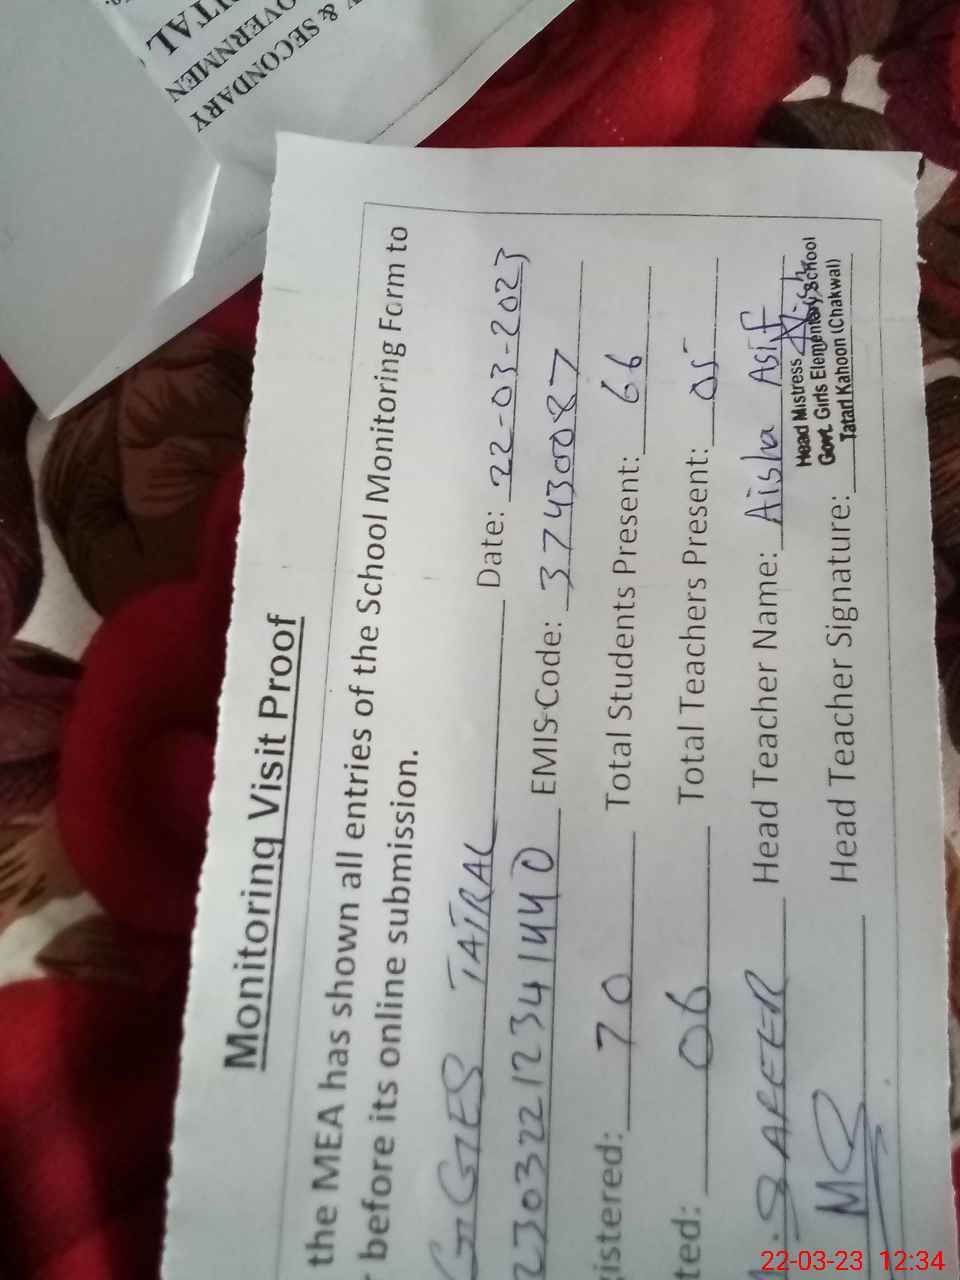 TAL
OVERNMEN
& SECONDARY
Monitoring Visit Proof
the MEA has shown all entries of the School Monitoring Form to
before its online submission.
GGES TATRAL Date: 22-03-2023
23032212341440 EMIS Code: 37430087
gistered: 70 Total Students Present: 66
ted: 06 Total Teachers Present: 05
SAFEER Head Teacher Name: Aisha Asif
Head Mistress
Govt. Girls Elementary School
Tatarl Kahoon (Chakwal)
Head Teacher Signature:
22-03-23 12:34